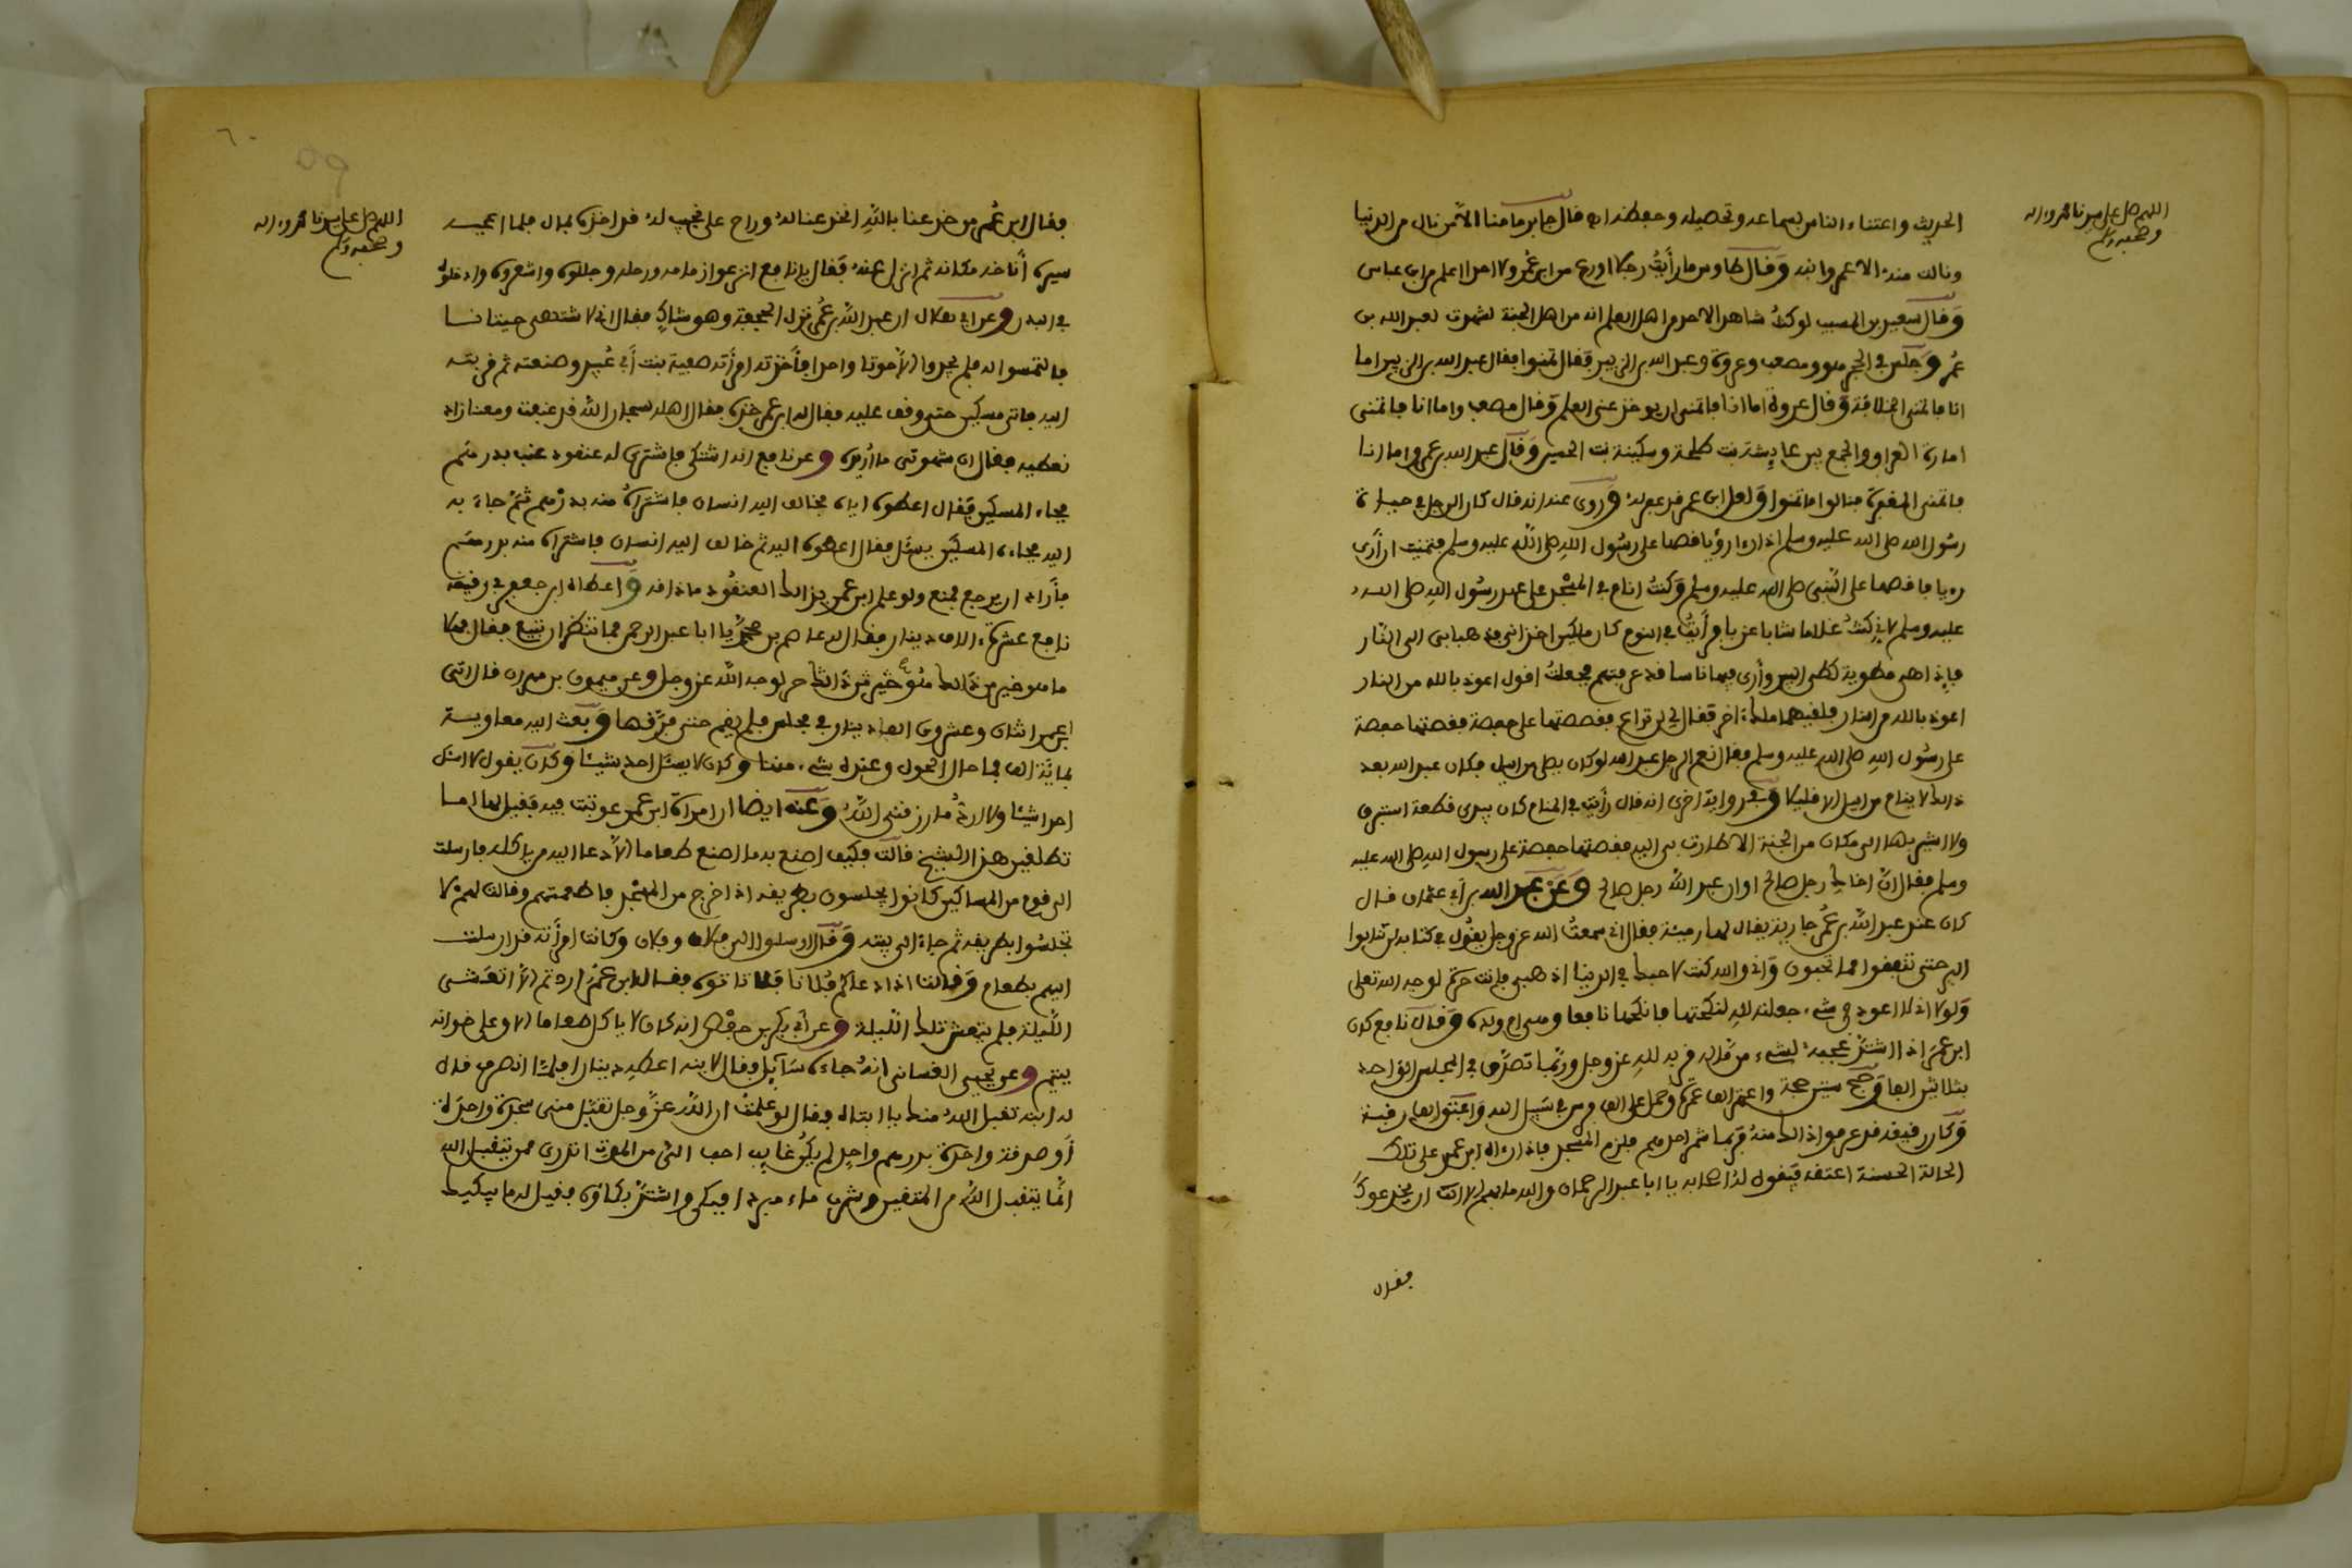 اللهم صل على سيدنا محمد واله
وصحبه وسلم
الحديث واعتناء الناس بسماعه وتحصيله وحفظه قال جابر ما منا الا من نال من الدنيا
ونالت منه الا عمر وابنه وقال طاوس ما رأيت رجلا اورع من ابن عمر ولا احدا اعلم من ابن عباس
وقال سعيد بن المسيب لو كنت شاهدا لاحد من اهل العلم انه من اهل الجنة لشهدت لعبد الله بن
عمر وجلس في الحجر هو ومصعب وعروة وعبد الله بن الزبير فقال تمنوا فقال عبد الله بن الزبير اما
انا فاتمنى الخلافة وقال عروة اما انا فاتمنى ان يوخذ عني العلم وقال مصعب واما انا فاتمنى
امارة العراق والجمع بين عايشة بنت طلحة وسكينة بنت الحسين وقال عبد الله بن عمر واما انا
فاتمنى المغفرة فنالوا ما تمنوا ولعل ابن عمر قد غفر له وروى عنه انه قال كان الرجل في حياة
رسول الله صلى الله عليه وسلم اذا رءا رؤيا قصها على رسول الله صلى الله عليه وسلم فتمنيت ان أرى
رءيا فاقصها على النبي صلى الله عليه وسلم وكنت انام في المسجد على عهد رسول الله صلى الله
عليه وسلم لاني كنت غلاما شابا عزبا فرأيت في النوم كان ملكين اخذاني فذهبا بي الى النار
فإذا هي مطوية كطي البير وأرى فيها ناسا قد عرفتهم فجعلت اقول اعوذ بالله من النار
اعوذ بالله من النار فلقيهما ملك ءاخر فقال لي لن تراع فقصصتها على حفصة فقصتها حفصة
على رسول الله صلى الله عليه وسلم فقال نعم الرجل عبد الله لو كان يصلي من الليل فكان عبد الله بعد
ذالك لا ينام من الليل الا قليلا وفي رواية اخرى انه قال رأيت في المنام كان بيدي قطعة استبرق
ولا اشير بها الى مكان من الجنة الا طارت بي اليه فقصتها حفصة على رسول الله صلى الله عليه
وسلم فقال ان اخاك رجل صالح او ان عبد الله رجل صالح وعن عبد الله بن أبي عثمان قال
كان عند عبد الله بن عمر جارية يقال لها رميثة فقال اني سمعت الله عز وجل يقول في كتابه لن تنالوا
البر حتى تنفقوا مما تحبون واني والله كنت لاحبك في الدنيا اذهبي فانت حرة لوجه الله تعلى
ولولا اني لا اعود في شيء جعلته لله لنكحتها فانكحها نافعا وهي ام ولده وقال نافع كان
ابن عمر إذا اشتد عجبه لشيء من ماله قربه لله عز وجل وربما تصدق في المجلس الواحد
بثلاثين الفا وحج ستين حجة واعتمر الف عمرة وحمل على الف فرس في سبيل الله واعتق الف رقبة
وكان رقيقه قد عرفوا ذالك منه فربما شمر احدهم فلزم المسجد فاذا رءاه ابن عمر على تلك
الحالة الحسنة اعتقه فيقول له اصحابه يا ابا عبد الرحمان والله ما بهم الا ان يخدعوك
فقال
٦٠
59
اللهم صل على سيدنا محمد واله
وصحبه وسلم
فقال ابن عمر من خدعنا بالله انخدعنا له وراح على نجيب له قد اخذه بمال فلما اعجبه
سيره أناخه مكانه ثم انزل عنه فقال يا نافع انزعوا زمامه ورحله وجللوه واشعروه وادخلوه
في البدن وعن ابي هلال ان عبد الله بن عمر نزل الجحفة وهو شاك فقال اني لاشتهي حيتانا
فالتمسوا له فلم يجدوا الا حوتا واحدا فأخذته امرأته صفية بنت أبي عبيد وصنعته ثم قربته
اليه فاتى مسكين حتى وقف عليه فقال له ابن عمر خذه فقال اهله سبحان الله قد عنيتنا ومعنا زاد
نعطيه فقال ان شهوتي ما أريده وعن نافع انه اشتكى فاشترى له عنقود عنب بدرهم
فجاء المسكين فقال اعطوه اياه فخالف اليه انسان فاشتراه منه بدرهم ثم جاء به
اليه فجاءه المسكين يسئل فقال اعطوه اليه ثم خالف اليه انسان فاشتراه منه بدرهم
فأراد ان يرجع فمنع ولو علم ابن عمر بذالك العنقود ما ذاقه واعطاه ابن جعفر في رقيقه
نافع عشرة ءالاف دينار فقال له عاصم بن محمد يا ابا عبد الرحمن فما تنتظر ان تبيع فقال فهلا
ما هو خير من ذالك هو خير من ذالك حر لوجه الله عز وجل وعن ميمون بن مهران قال اتى
ابن عمر اثنان وعشرون الف دينار في مجلس فلم يقم حتى فرقها وبعث اليه معاوية
بمائة الف فما حال الحول وعنده شيء منها وكان لا يسئل احد شيئا وكان يقول لا اسئل
احدا شيئا ولا ارد ما رزقني الله وعنه ايضا ان امرأة ابن عمر عوتبت فيه فقيل لها اما
تطلفين هذا الشيخ قالت فكيف اصنع به ما اصنع طعاما الا دعا اليه من ياكله فارسلت
الى قوم من المساكين كانوا يجلسون بطريقه اذا خرج من المسجد فاطعمتهم وقالت لهم لا
تجلسوا بطريقه ثم جاء الى بيته وقال ارسلوا الى فلان وفلان وكانت امرأته قد ارسلت
اليهم بطعام وقالت اذا دعاكم فلا تاتوه فقال ابن عمر اردتم الا اتعشى
الليلة فلم يتعش تلك الليلة وعن أبي بكر بن حفص انه كان لا ياكل طعاما الا وعلى خوانه
يتيم وعن يحيى الغساني انه جاءه سائل فقال لابنه اعطه دينارا فلما انصرف قال
له ابنه تقبل الله منك يا ابتاه فقال لو علمت ان الله عز وجل تقبل مني سجدة واحدة
أو صدقة واحدة بدرهم واحد لم يكن غايب احب الي من الموت اتدري ممن يتقبل الله
انما يتقبل الله من المتقين وشرب ماء مبردا فبكى واشتد بكاؤه فقيل له ما يبكيك